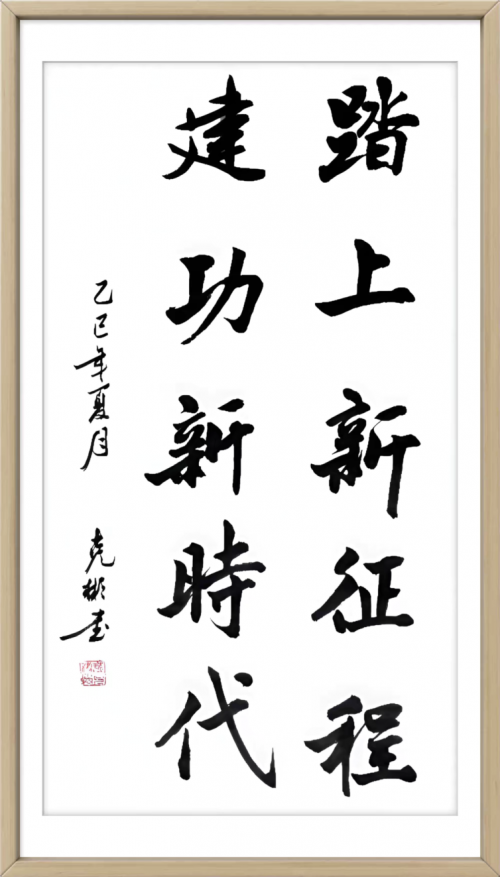 踏上新征程
建功新時代
乙巳年夏月
克彬書